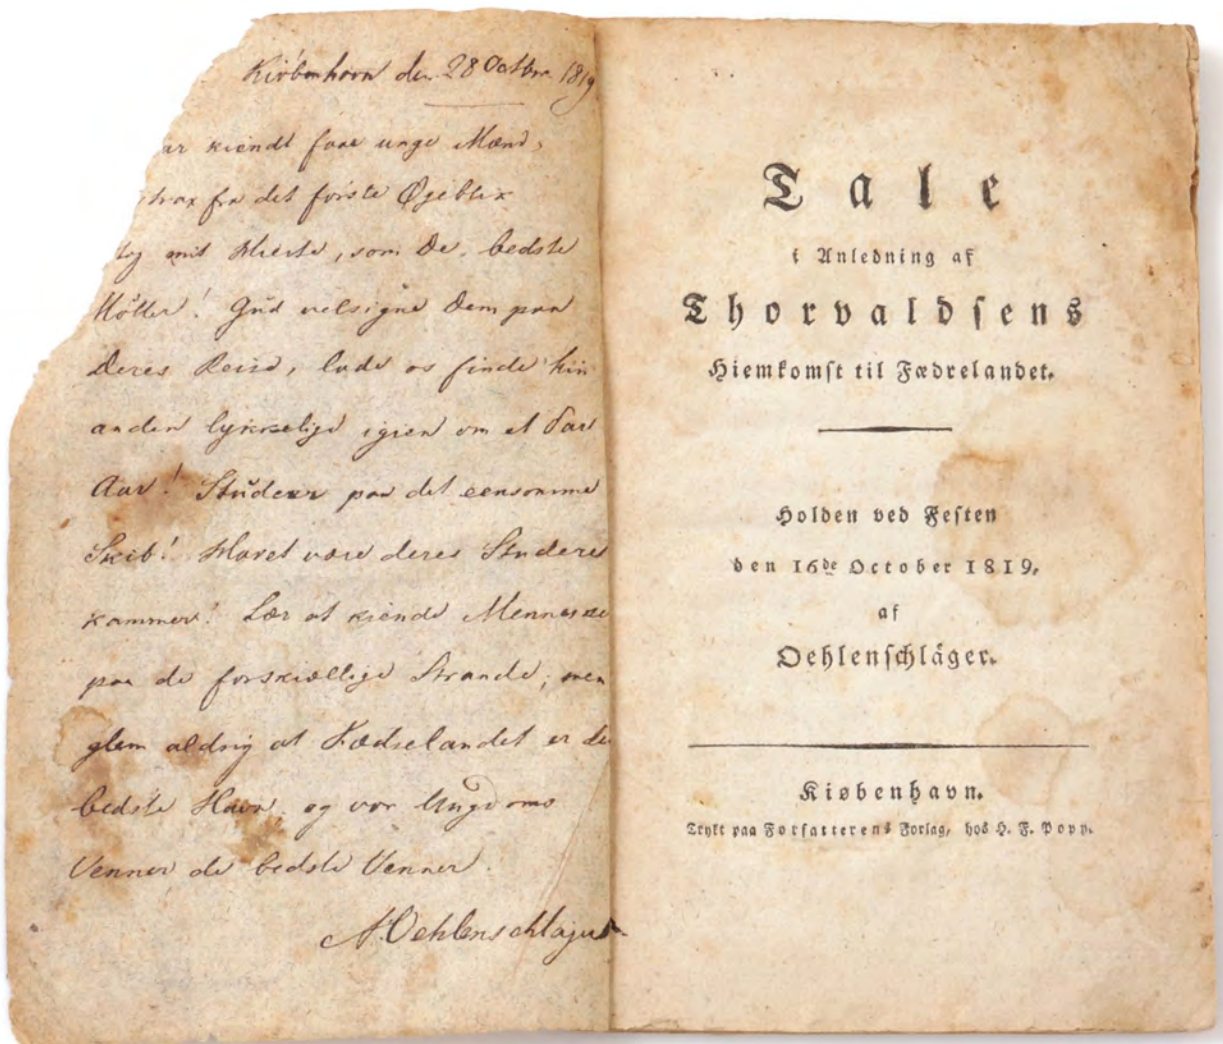 Kiöbenhavn den 28 Octbr 1819
ar kiendt faae unge Mænd,
strax fra det förste Øgeblik
tog mit Hierte, som De, bedste
Møller! Gud velsigne Dem paa
Deres Reise, lade os finde hin
anden lykkelige igien om et Par
Aar! Studeer paa det eensomme
Skib! Havet være deres Studere
kammer! Lær at kiende Mennesket
paa de forskiællige Strande; men
glem aldrig at Fædrelandet er den
bedste Havn, og vor Ungdoms
Venner de bedste Venner.
A. Oehlenschläger
Tale
i Anledning af
Thorvaldsens
Hiemkomst til Fædrelandet.
Holden ved Festen
den 16de October 1819.
af
Oehlenschläger.
Kiøbenhavn.
Trykt paa Forfatterens Forlag, hos H. F. Popp.